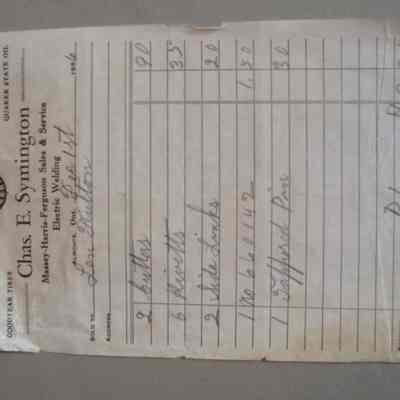 GOODYEAR TIRES QUAKER STATE OIL
Chas. E. Symington
Massey-Harris-Ferguson Sales & Service
Electric Welding
Almonte, Ont. Dec 1st 1956
SOLD TO Len Fulton
ADDRESS
2 Cutters 90
6 Rivetts 35
2 Side Links 20
1 No 660142 1.50
1 Tappered Pin 30